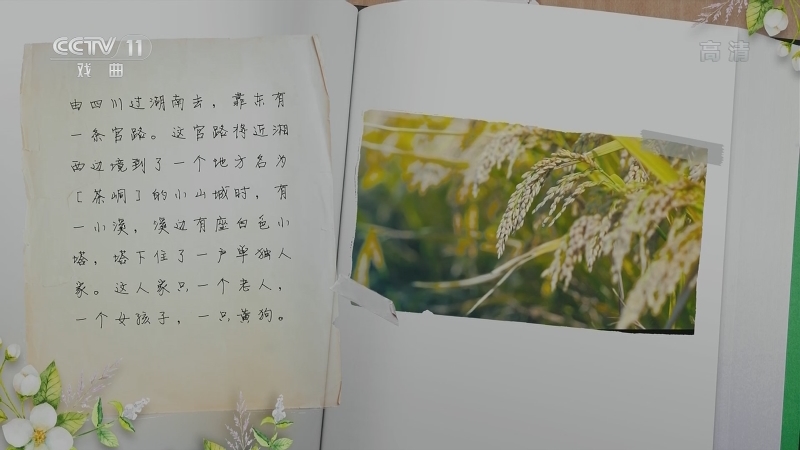 CCTV 11
戏曲
高清
由四川过湖南去，靠东有
一条官路。这官路将近湘
西边境到了一个地方名为
［茶峒］的小山城时，有
一小溪，溪边有座白色小
塔，塔下住了一户单独人
家。这人家只一个老人，
一个女孩子，一只黄狗。